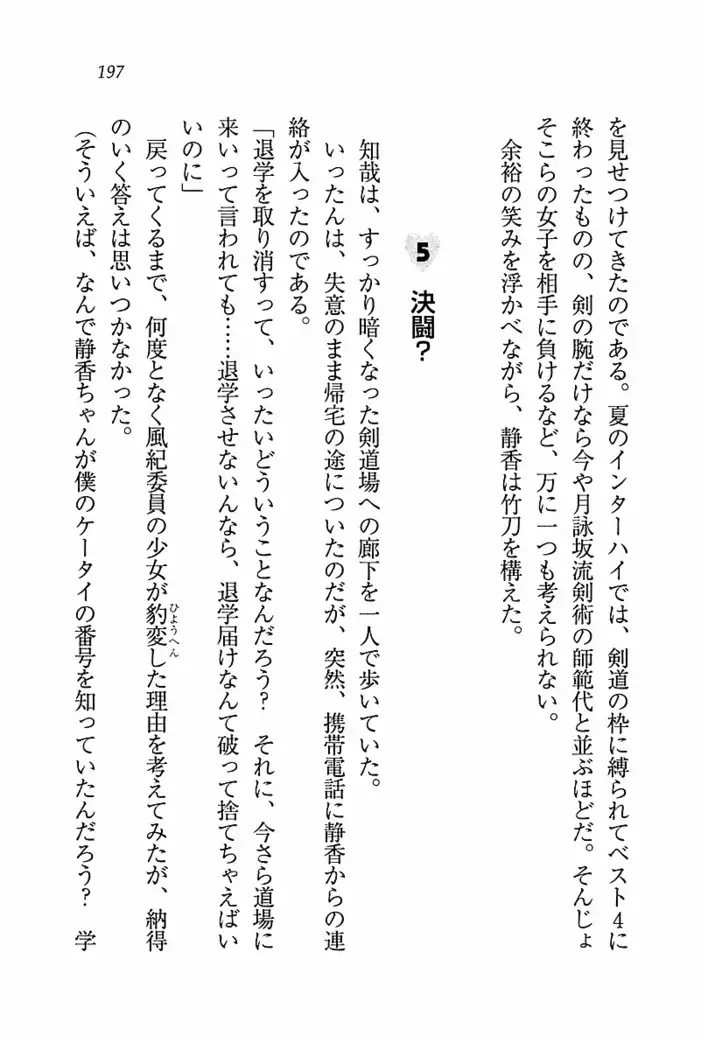 を見せつけてきたのである。夏のインターハイでは、剣道の枠に縛られてベスト4に
終わったものの、剣の腕だけなら今や月詠坂流剣術の師範代と並ぶほどだ。そんじょ
そこらの女子を相手に負けるなど、万に一つも考えられない。
余裕の笑みを浮かべながら、静香は竹刀を構えた。
5 決闘？
知哉は、すっかり暗くなった剣道場への廊下を一人で歩いていた。
いったんは、失意のまま帰宅の途についたのだが、突然、携帯電話に静香からの連
絡が入ったのである。
「退学を取り消すって、いったいどういうことなんだろう？　それに、今さら道場に
来いって言われても……退学させないんなら、退学届けなんて破って捨てちゃえばい
いのに」
戻ってくるまで、何度となく風紀委員の少女が豹変した理由を考えてみたが、納得
ひようへん
のいく答えは思いつかなかった。
（そういえば、なんで静香ちゃんが僕のケータイの番号を知っていたんだろう？　学
197